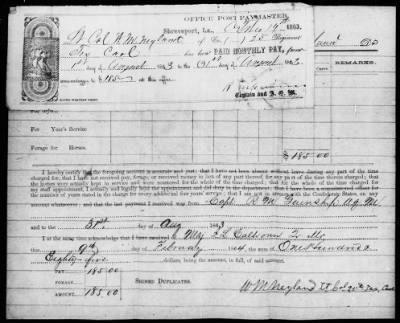 OFFICE POST PAYMASTER,
Shreveport, La., 1863.
Lt Col W. M. Neyland of Co. 25 Regiment
Tex Cavl has been PAID MONTHLY PAY, from
1st day of August 1863 to the 31st day of August 1863
$185 at this office.
Captain and A. Q. M.
REMARKS.
For Year's Service
Forage for Horses
$185.00
I hereby certify that the foregoing account is accurate and just; that I have not been absent without leave during any part of the time
charged for; that I have not received pay, forage, or received money in lieu of any part thereof for any part of the time therein charged; that
the horses were actually kept in service and were mustered for the whole of the time charged; that for the whole of the time charged for my
staff appointment, I actually and legally held the appointment and did duty in the department; that I have been a commissioned officer for
the number of years stated in the charge for every additional five years' service; that I am not in arrears with the Confederate States, on any
account whatsoever; and that the last payment I received was from Capt.
and to the 31st Aug 1863
I at the same time acknowledge that I have received of Maj
this 9th day of 4, the sum of One Hundred &
Eighty five dollars, being the amount, in full, of said account.
PAY 185.00
FORAGE
AMOUNT 185.00
SIGNED DUPLICATES.
W M Neyland Lt Col 25th Tex Cav